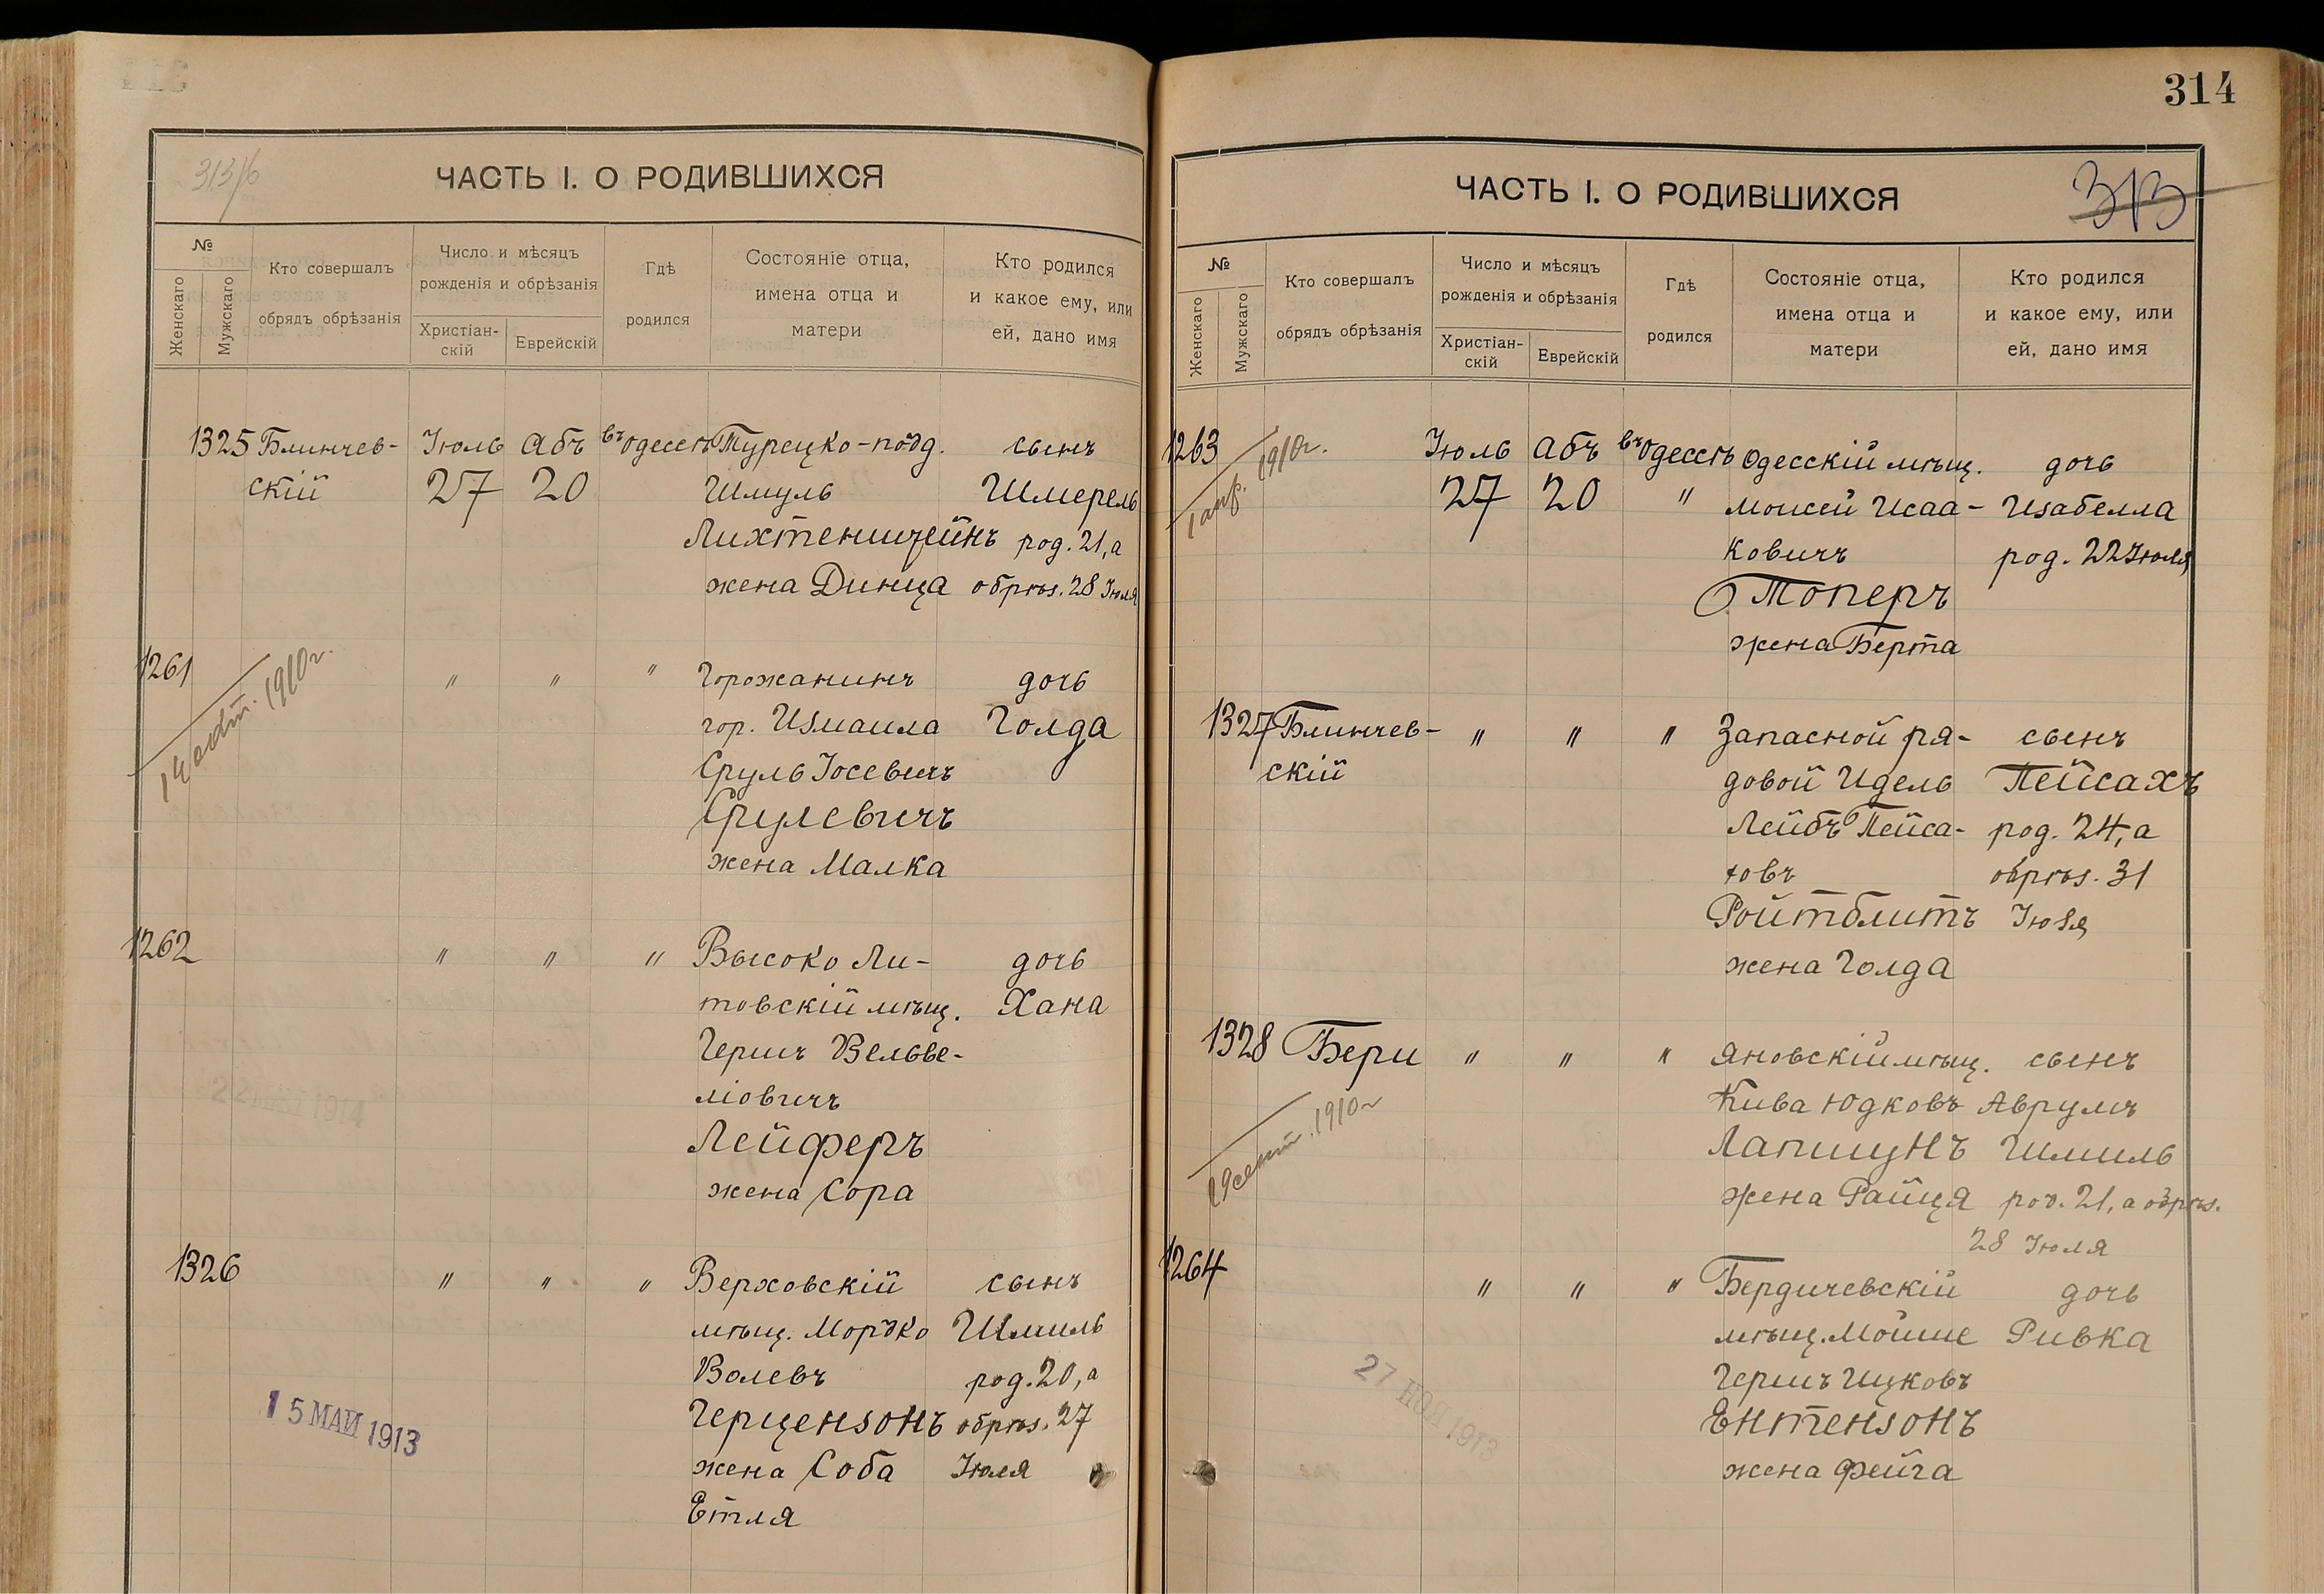 314
313/б
ЧАСТЬ I. О РОДИВШИХСЯ
№
Женскаго
Мужскаго
Кто совершалъ
обрядъ обрѣзанія
Число и мѣсяцъ
рожденія и обрѣзанія
Христіан-
скій
Еврейскій
Гдѣ
родился
Состояніе отца,
имена отца и
матери
Кто родился
и какое ему, или
ей, дано имя
1325 Блинчев- Іюль Абъ въ Одессѣ Турецко-подд. сынъ
скій 27 20 Шмуль Шмерель
Лихтенштейнъ род. 21, а
жена Динца обрѣз. 28 Іюля
1261 " " " Горожанинъ дочь
14 окт. 1910 г.
гор. Измаила Голда
Сруль Іосевичъ
Срулевичъ
жена Малка
1262 " " " Высоко Ли- дочь
товскій мѣщ. Хана
Гершъ Вельве-
ліовичъ
22 МАЙ 1914
Лейферъ
жена Сора
1326 " " " Верховскій сынъ
мѣщ. Мордко Шмиль
Волевъ род. 20, а
15 МАЙ 1913
Герцензонъ обрѣз. 27
жена Соба Іюля
Етля
ЧАСТЬ I. О РОДИВШИХСЯ
313
№
Женскаго
Мужскаго
Кто совершалъ
обрядъ обрѣзанія
Число и мѣсяцъ
рожденія и обрѣзанія
Христіан-
скій
Еврейскій
Гдѣ
родился
Состояніе отца,
имена отца и
матери
Кто родился
и какое ему, или
ей, дано имя
1263 Іюль Абъ въ Одессѣ Одесскій мѣщ. дочь
1910 г.
27 20 " Моисей Исаа- Изабелла
ковичъ род. 22 Іюля
Топеръ
жена Берта
1327 Блинчев- " " " Запасной ря- сынъ
скій довой Идель Пейсахъ
Лейбъ Пейса- род. 24, а
ховъ обрѣз. 31
Ройтблитъ Іюля
жена Голда
1328 Бери " " " Яновскій мѣщ. сынъ
19 сент. 1910 г
Кива Юдковъ Аврумъ
Лапшунъ Шмиль
жена Райця род. 21, а обрѣз.
28 Іюля
1264 " " " Бердичевскій дочь
мѣщ. Мойше Ривка
Гершъ Ицковъ
27 НОЯ 1913
Ентензонъ
жена Фейга